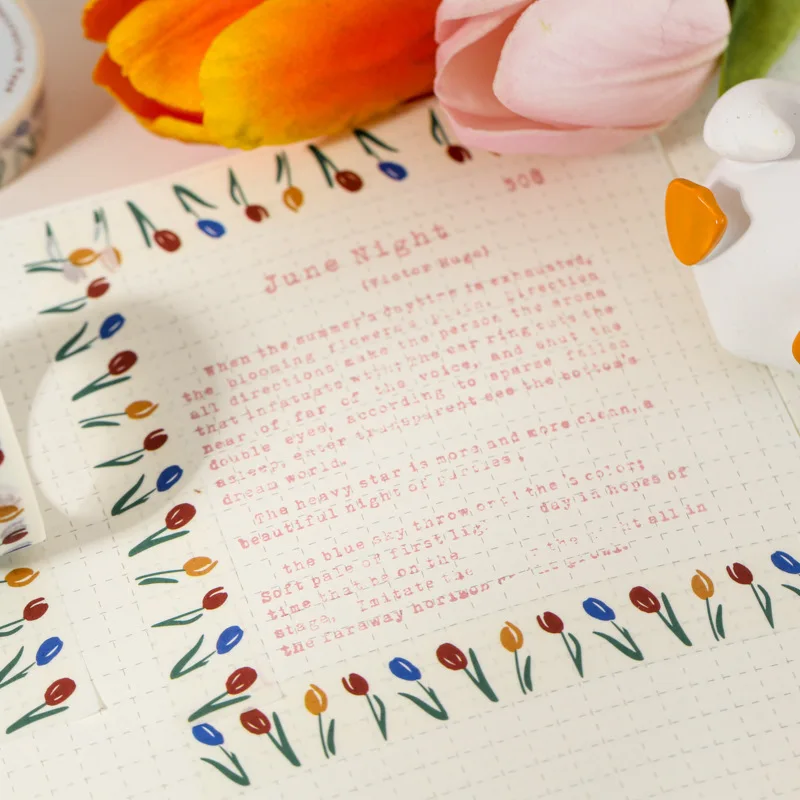 908
June Night
(Victor Hugo)
When the summer's daytime is exhausted,
the blooming flowers direction
all directions make the person the aroma
that infatuate with; the ear ring cuts the
near of far of the voice, and shut the
double eyes, according to sparse fallen
asleep enter transparent see the bottom's
dream world.
The heavy star is more and more clean, a
beautiful night of
the blue sky throw the's color;
Soft pale of first day in hopes of
time that be on the the all in
stage. Imitate the
the faraway horizon